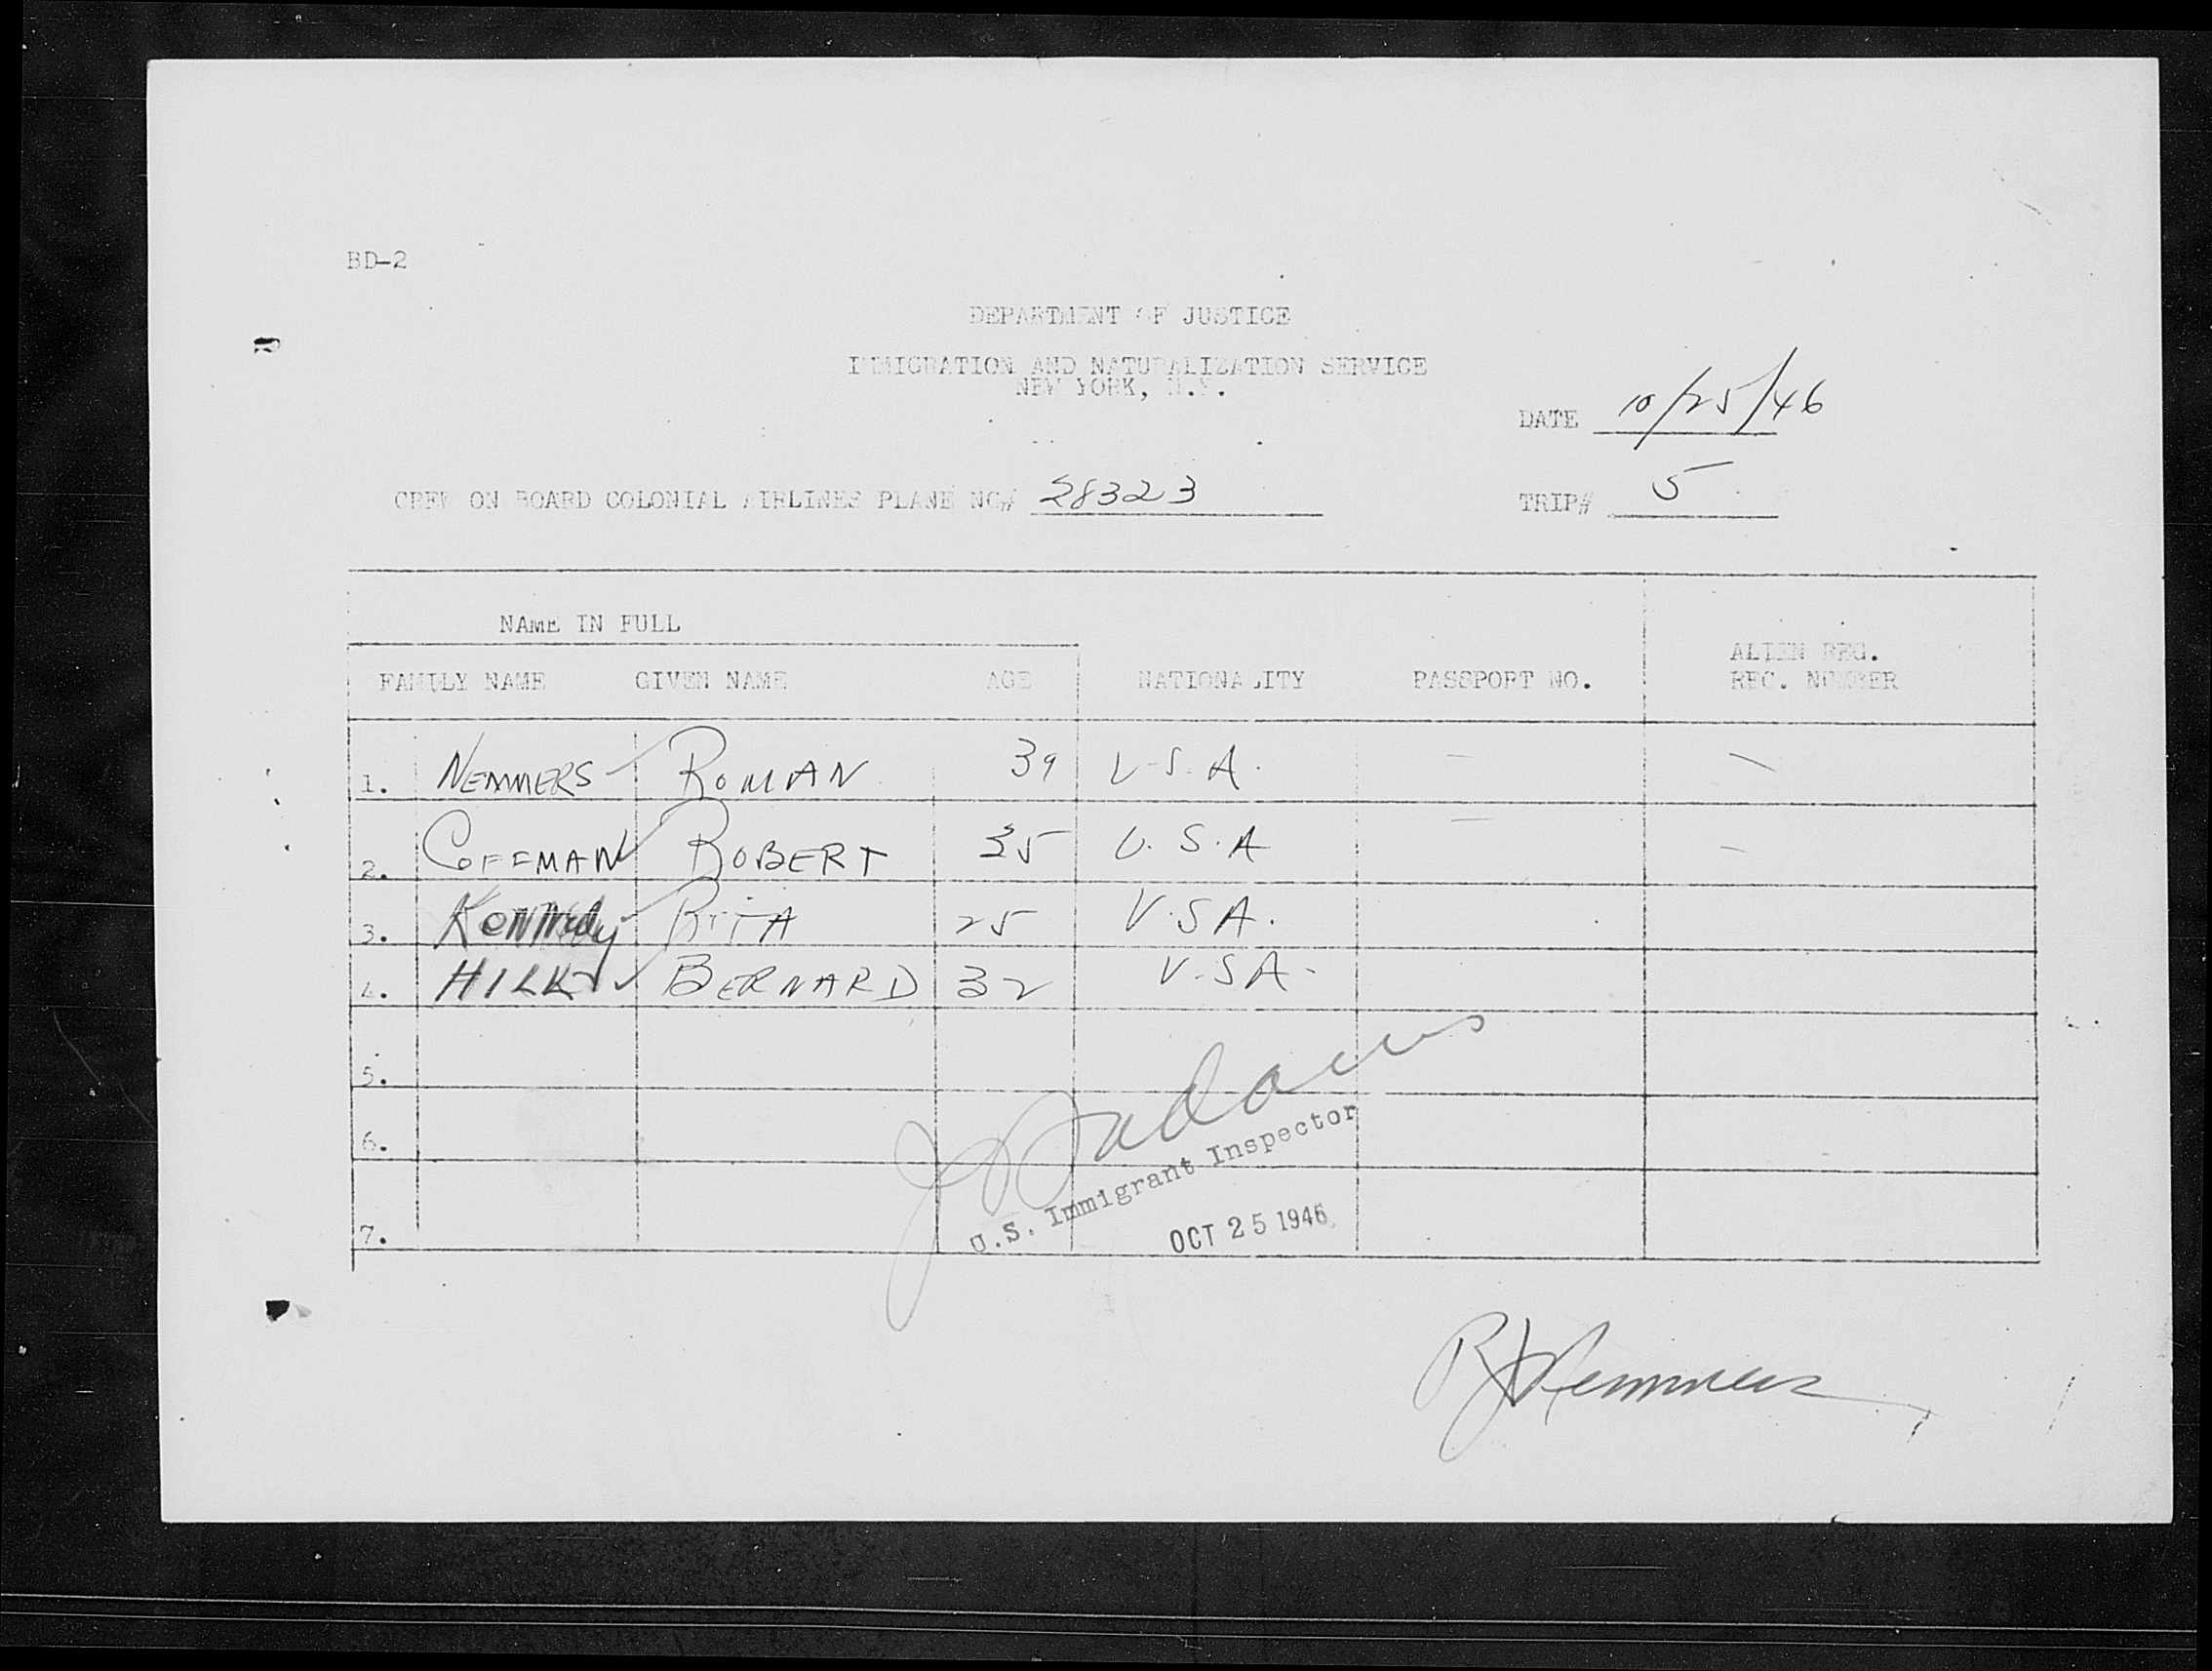 BD-2
DEPARTMENT OF JUSTICE
IMMIGRATION AND NATURALIZATION SERVICE
NEW YORK, N.Y.
DATE 10/25/46
CREW ON BOARD COLONIAL AIRLINES PLANE NO# 28323 TRIP# 5
NAME IN FULL
ALIEN REG.
FAMILY NAME GIVEN NAME AGE NATIONALITY PASSPORT NO. REC. NUMBER
1. NEMMERS ROMAN 39 U.S.A. — —
2. COFFMAN ROBERT 35 U.S.A — —
3. Kennedy RITA 25 U.S.A.
4. BERNARD 32 U.S.A.
5.
6.
7.
Adams
U.S. Immigrant Inspector
OCT 25 1946
R J Nemmers